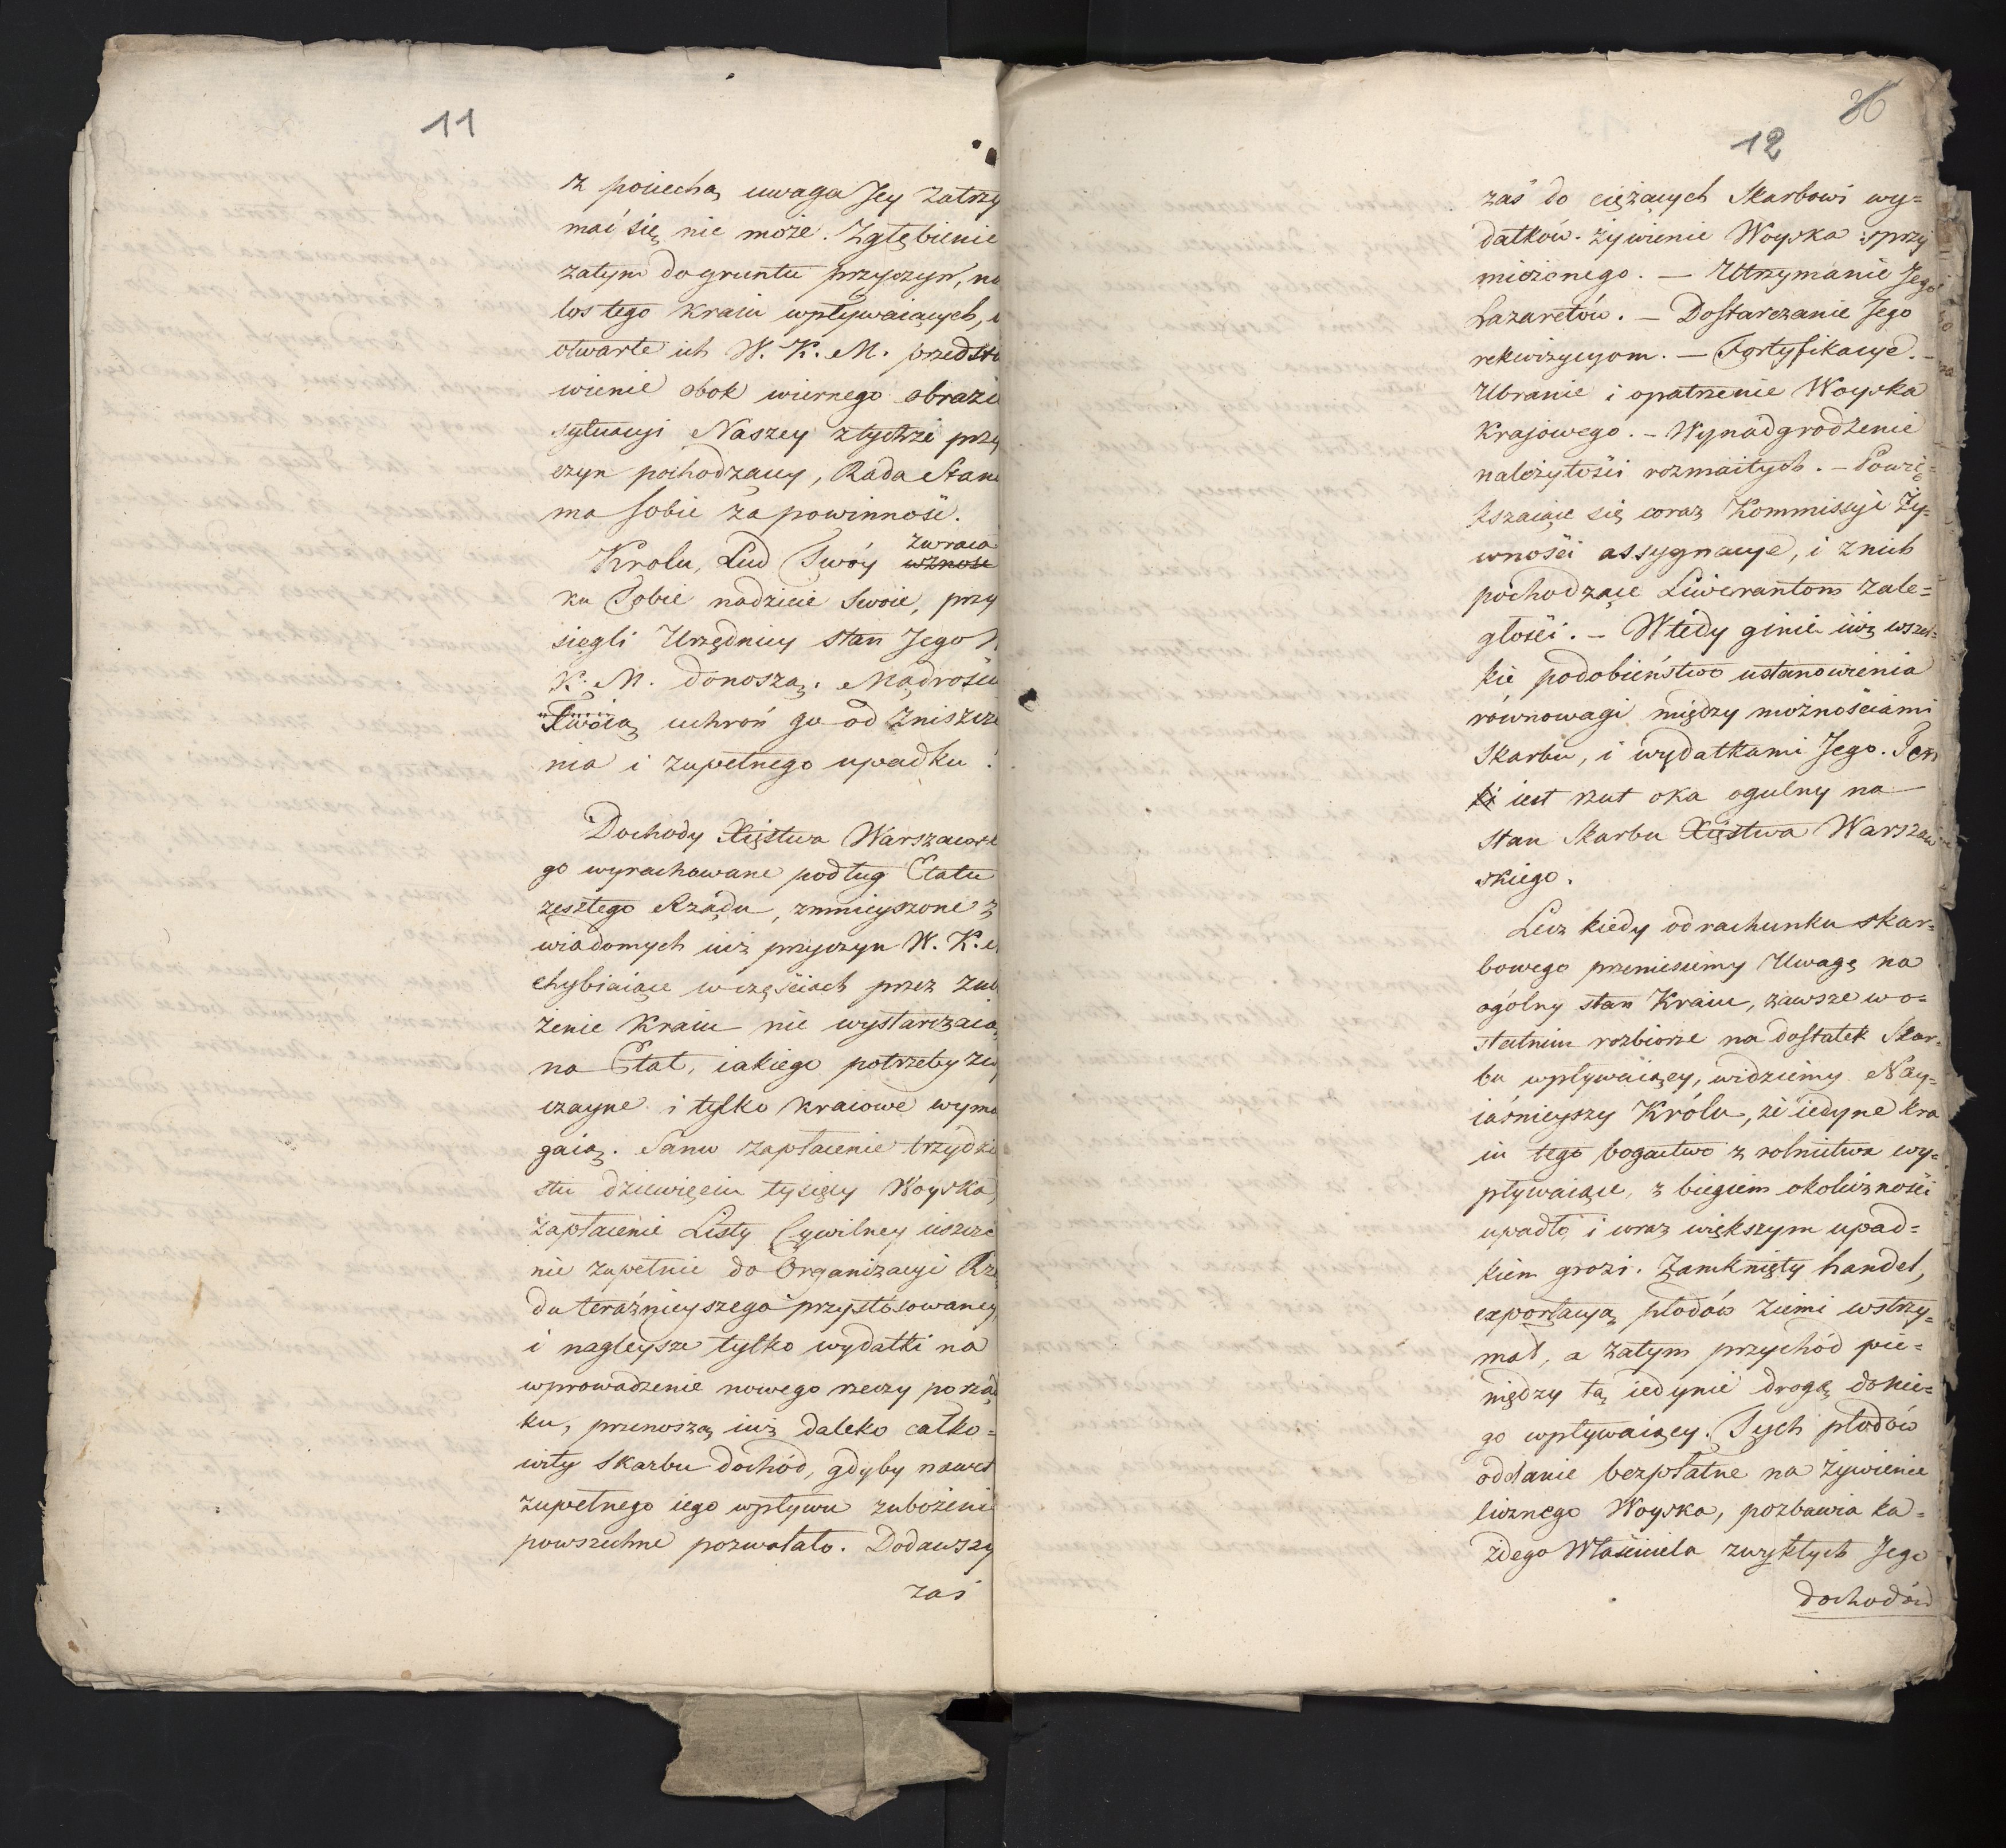 11
z pociechą uwaga Jey zatrzy
mać się nie może. Zgłębienie
zatym do gruntu przyczyn, na
los tego Kraiu wpływaiących,
otwarte ich W. K. M. przedsta
wienie obok wiernego obrazu
sytuacyi Naszey z tychże przy
czyn pochodzącey, Rada Stanu
ma sobie za powinność.
zwraca
Krolu, Lud Twóy wznosi
ku Tobie nadzieie swoie, przy
sięgli Urzędnicy stan Jego W
K. M. donoszą. Mądrością
Twoią uchroń go od zniszcze
nia i zupełnego upadku!
Dochody Xięstwa Warszawskie
go wyrachowane podług Etatu
zeszłego Rządu, zmnieyszone z
wiadomych iuż przyczyn W. K. M
chybiaiące w częściach przez zubo
żenie Kraiu nie wystarczaią
na Etat, iakiego potrzeby zwy
czayne i tylko kraiowe wyma
gaią. Samo zapłacenie trzydzie
stu dziewięciu tysięcy Woyska,
zapłacenie Listy Cywilney iiszcze
nie zupełnie do Organizacyi Rzą
du teraźnieyszego przystosowaney
i nagleysze tylko wydatki na
wprowadzenie nowego rzeczy porząd
ku, przenoszą iuż daleko całko=
wity Skarbu dochód, gdyby nawet
zupełnego iego wpływu zubożenie
powszechne pozwalało. Dodawszy
zaś
36
12
zaś do ciężących Skarbowi wy=
datków. żywienie Woyska sprzy
mierzonego. — Utrzymanie Jego
Lazaretów. — Dostarczanie Jego
rekwizycyom. — Fortyfikacye. —
Ubranie i opatrzenie Woyska
Krajowego. — Wynadgrodzenie
należytości rozmaitych. — Powię=
kszaiące się coraz Kommissyi Ży=
wności assygnacye, i z nich
pochodzące Liwerantom zale=
głości. — Wtedy ginie iuż wszel=
kie podobieństwo ustanowienia
równowagi między możnościami
Skarbu, i wydatkami Jego. Ten
ki iest rzut oka ogulny na
stan Skarbu Xięstwa Warszaw
skiego.
Lecz kiedy od rachunku skar=
bowego przeniesiemy Uwagę na
ogólny stan Kraiu, zawsze w o=
statnim rozbiorze na dostatek Skar=
bu wpływaiący, widziemy Nay=
iaśnieyszy Królu, że iedyne kra
iu tego bogactwo z rolnictwa wy=
pływaiące, z biegiem okoliczności
upadło i coraz większym upad=
kiem grozi. Zamknięty handel,
exportacyą płodów ziemi wstrzy=
mał, a zatym przychód pie=
niędzy tą iedynie drogą do nie=
go wpływaiący. Tych płodów
oddanie bezpłatne na żywienie
licznego Woyska, pozbawia ka=
żdego Właściciela zwykłych Jego
dochodów